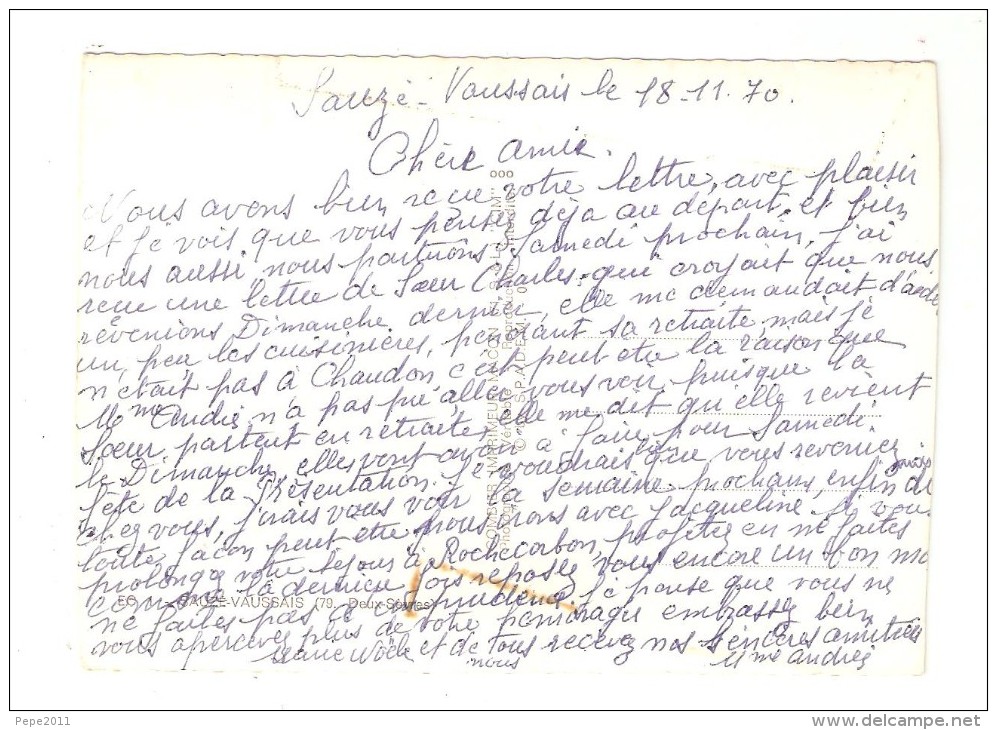 Sauzé-Vaussais le 18-11-70.
Chère amie.
Nous avons bien reçue votre lettre, avec plaisir
et je vois que vous pensez déja au départ, et bien
nous aussi, nous partirons Samedi prochain, j'ai
reçue une lettre de Sœur Charles, qui croyait que nous
revenions Dimanche dernier, elle me demandait d'aider
un peu les cuisinières, pendant sa retraite, mais je
n'était pas à Chaudon c'est peut etre la raison que
Mme André n'a pas pu aller vous voir, puisque la
Sœur partait en retraite, elle me dit qu'elle revient
le Dimanche, elles vont avoir à faire pour Samedi.
fête de la Présentation, je voudrais que vous reveniez
chez vous, j'irais vous voir la semaine prochain, enfin de
toute façon peut etre nous irons avec Jacqueline. Si vous
prolongez votre sejour à Rochecorbon, profitez en ne faites
comme la dernière fois reposez vous encore un bon mois
ne faites pas d'imprudence je pense que vous ne
vous apercevez plus de votre embrassez bien
et de tous recevez nos sincères amitiés
nous Mme André
EC SAUZE-VAUSSAIS (79. Deux-Sèvres)
COMBIER IMPRIMEUR MACON
S.P.A.D.E.M.
Pepe2011
www.delcampe.net